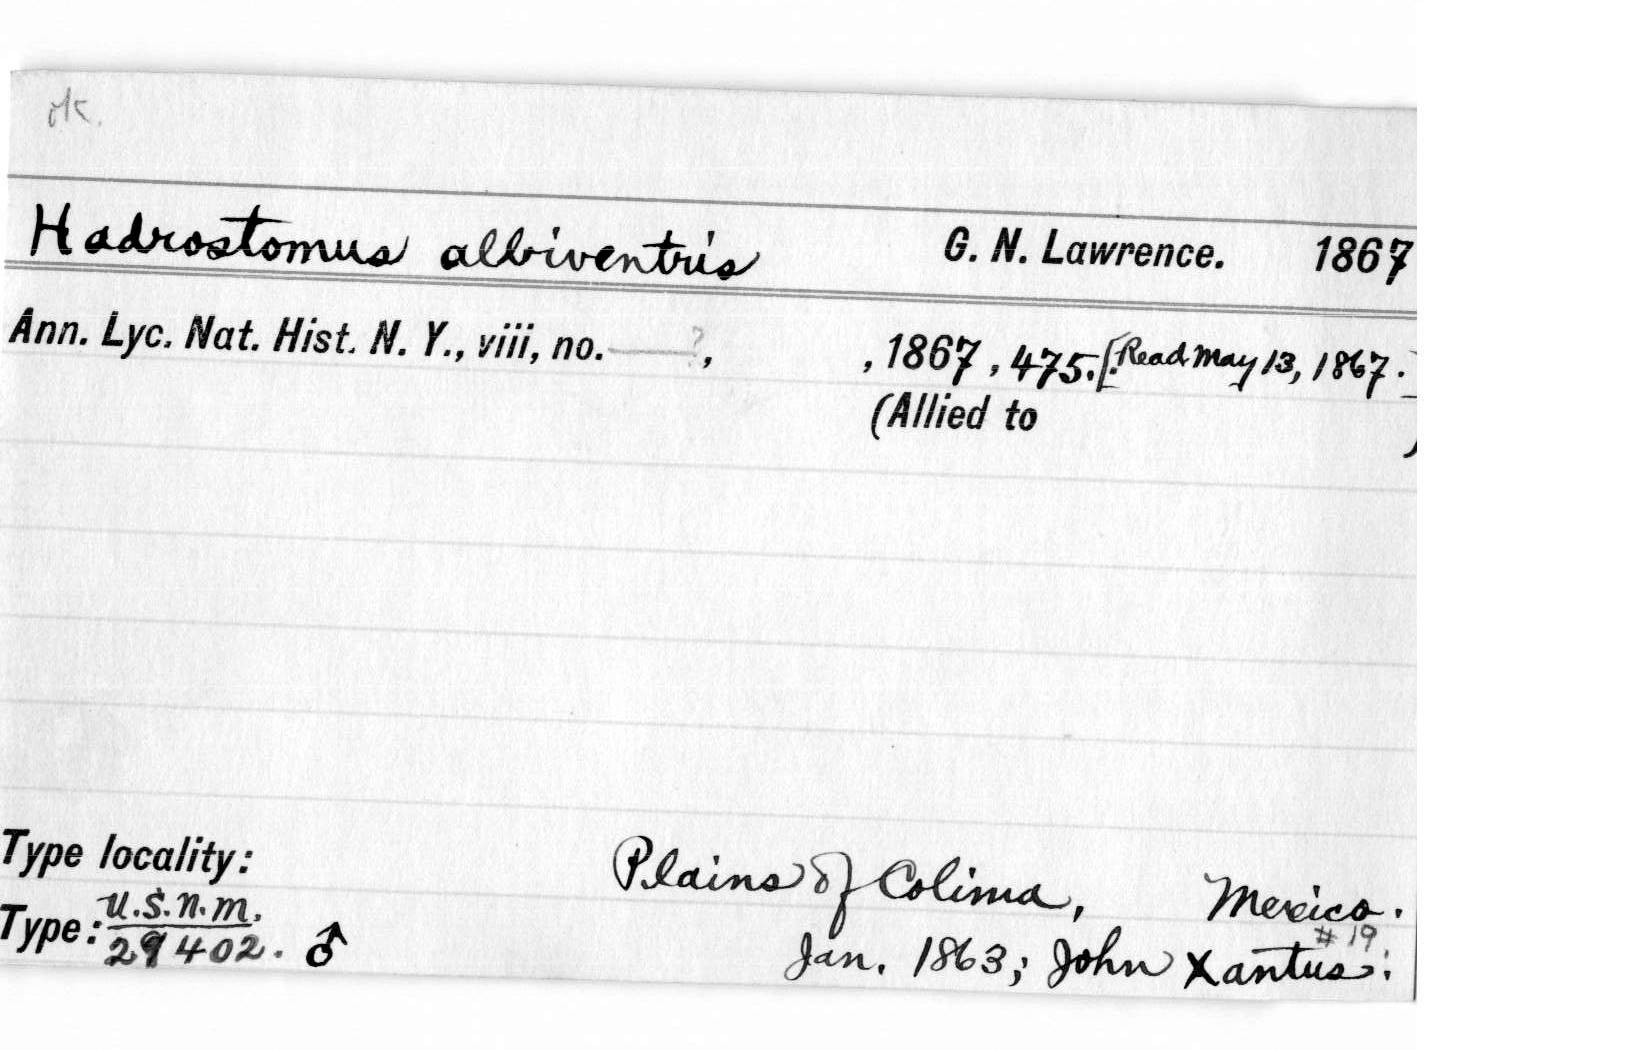 ok.
Hadrostomus albiventris G. N. Lawrence. 1867
Ann. Lyc. Nat. Hist. N. Y., viii, no. ——?, , 1867, 475. [Read May 13, 1867.]
(Allied to )
Type locality: Plains of Colima, Mexico.
Type: U.S.N.M. 29402. ♂ #19
Jan. 1863; John Xantus.